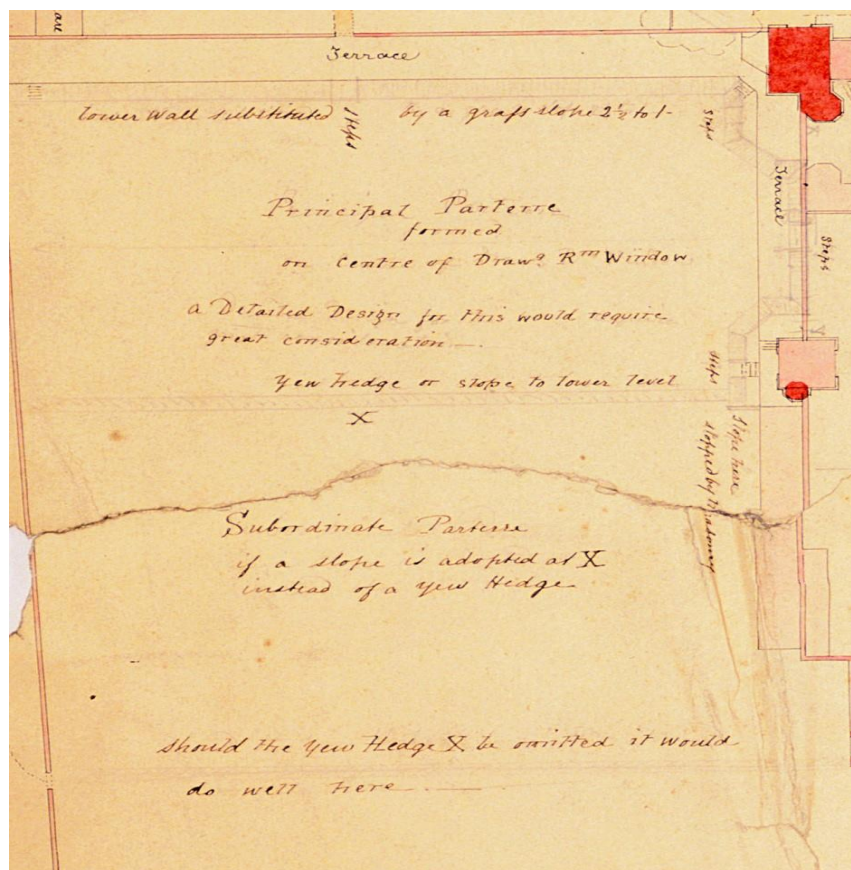 are
Terrace
lower wall substituted
Steps
by a grass slope 2½ to 1-
Steps
Terrace
Steps
Principal Parterre
formed
on Centre of Drawg. Rm Window
a Detailed Design for this would require
great consideration —.
Yew Hedge or slope to lower level
X
Steps
Slope here
stopped by Masonry
X
Y
Subordinate Parterre
if a slope is adopted at X
instead of a Yew Hedge
should the Yew Hedge X be omitted it would
do well here —.—